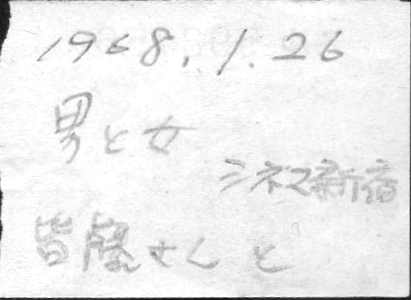 1968.1.26
男と女
シネマ新宿
さんと